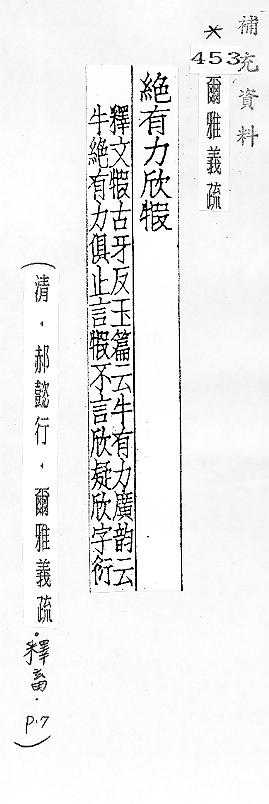 補充資料
*
453
爾雅義疏
絕有力欣犌
釋文犌古牙反玉篇云牛有力廣韵云
牛絕有力俱止言犌不言欣疑欣字衍
(清．郝懿行．爾雅義疏．釋畜．p.7)